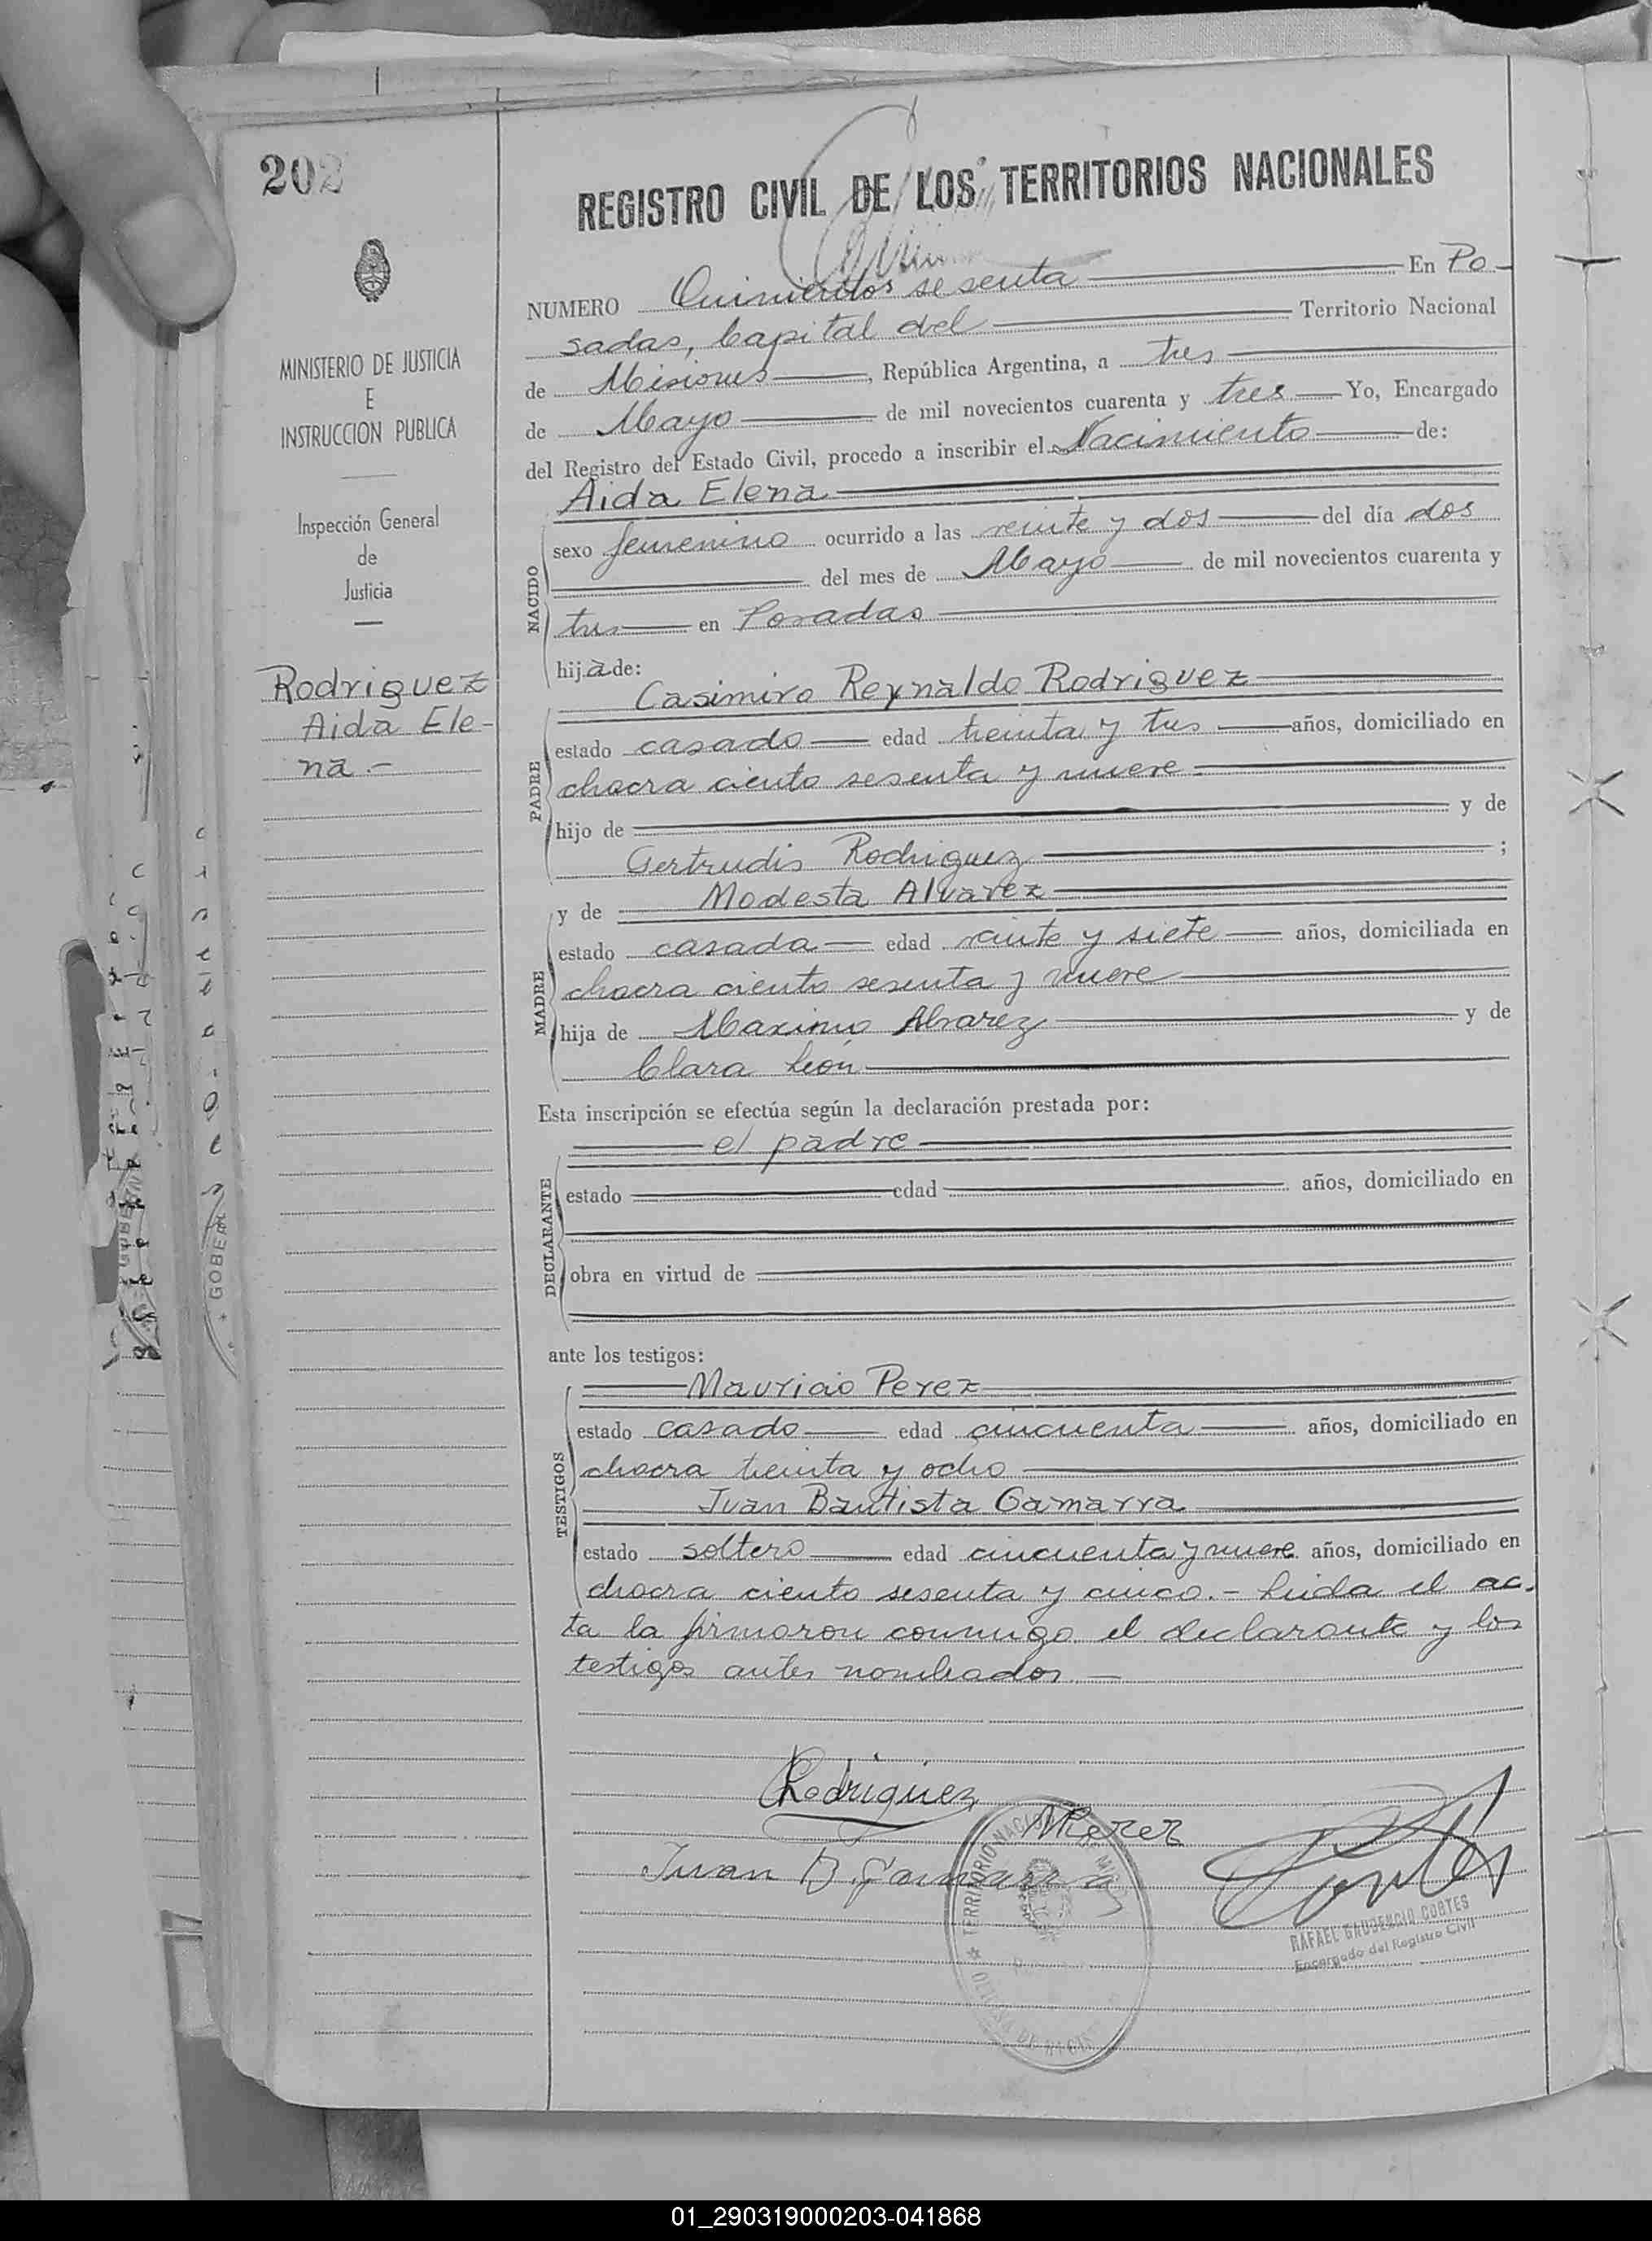 202
MINISTERIO DE JUSTICIA
E
INSTRUCCION PUBLICA
Inspección General
de
Justicia
Rodriguez
Aida Ele-
na.-
REGISTRO CIVIL DE LOS TERRITORIOS NACIONALES
NUMERO Quinientos sesenta En Po-
sadas, Capital del Territorio Nacional
de Misiones, República Argentina, a tres
de Mayo de mil novecientos cuarenta y tres Yo, Encargado
del Registro del Estado Civil, procedo a inscribir el Nacimiento de:
Aida Elena
NACIDO
sexo femenino ocurrido a las veinte y dos del día dos
del mes de Mayo de mil novecientos cuarenta y
tres en Posadas
hija de:
Casimiro Reynaldo Rodriguez
PADRE
estado casado edad treinta y tres años, domiciliado en
chacra ciento sesenta y nueve.
hijo de y de
Gertrudis Rodriguez ;
y de Modesta Alvarez
MADRE
estado casada edad veinte y siete años, domiciliada en
chacra ciento sesenta y nueve
hija de Maximo Alvarez y de
Clara León
Esta inscripción se efectúa según la declaración prestada por:
el padre
DECLARANTE
estado edad años, domiciliado en
obra en virtud de
ante los testigos:
Mauricio Perez
TESTIGOS
estado casado edad cincuenta años, domiciliado en
chacra treinta y ocho
Juan Bautista Gamarra
estado soltero edad cincuenta y nueve años, domiciliado en
chacra ciento sesenta y cinco.- Leida el ac-
ta la firmaron conmigo el declarante y los
testigos antes nombrados.
CRodriguez
MPerez
Juan B Gamarra
TERRITORIO NACIONAL DE MISIONES
RAFAEL GAUDENCIO CORTES
Encargado del Registro Civil
GOBER
01_290319000203-041868